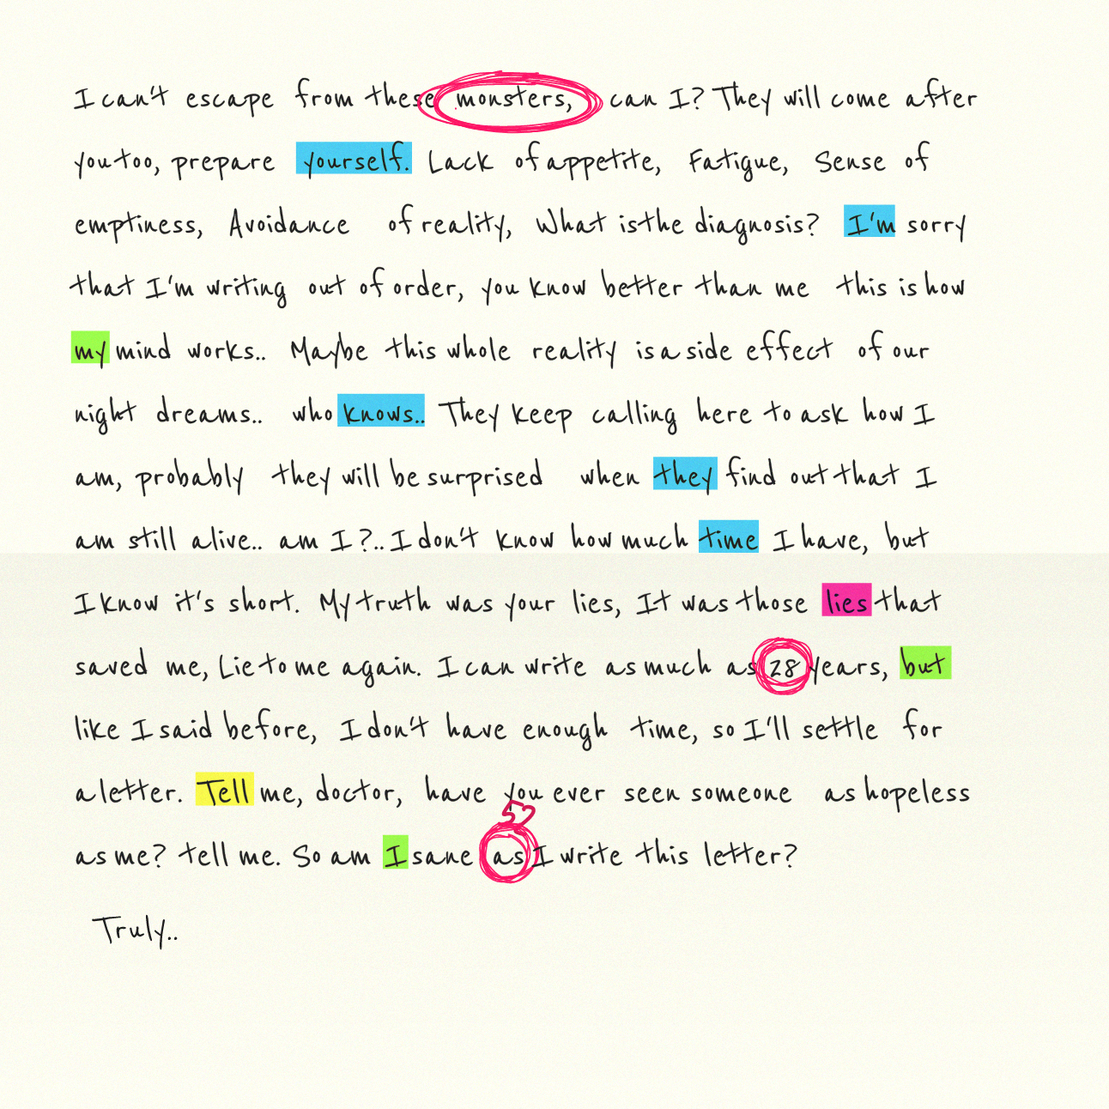 I can't escape from these monsters, can I? They will come after
you too, prepare yourself. Lack of appetite, Fatigue, Sense of
emptiness, Avoidance of reality, What is the diagnosis? I'm sorry
that I'm writing out of order, you know better than me this is how
my mind works.. Maybe this whole reality is a side effect of our
night dreams.. who knows.. They keep calling here to ask how I
am, probably they will be surprised when they find out that I
am still alive.. am I?.. I don't know how much time I have, but
I know it's short. My truth was your lies, It was those lies that
saved me, Lie to me again. I can write as much as 28 years, but
like I said before, I don't have enough time, so I'll settle for
a letter. Tell me, doctor, have you ever seen someone as hopeless
52
as me? tell me. So am I sane as I write this letter?
Truly..